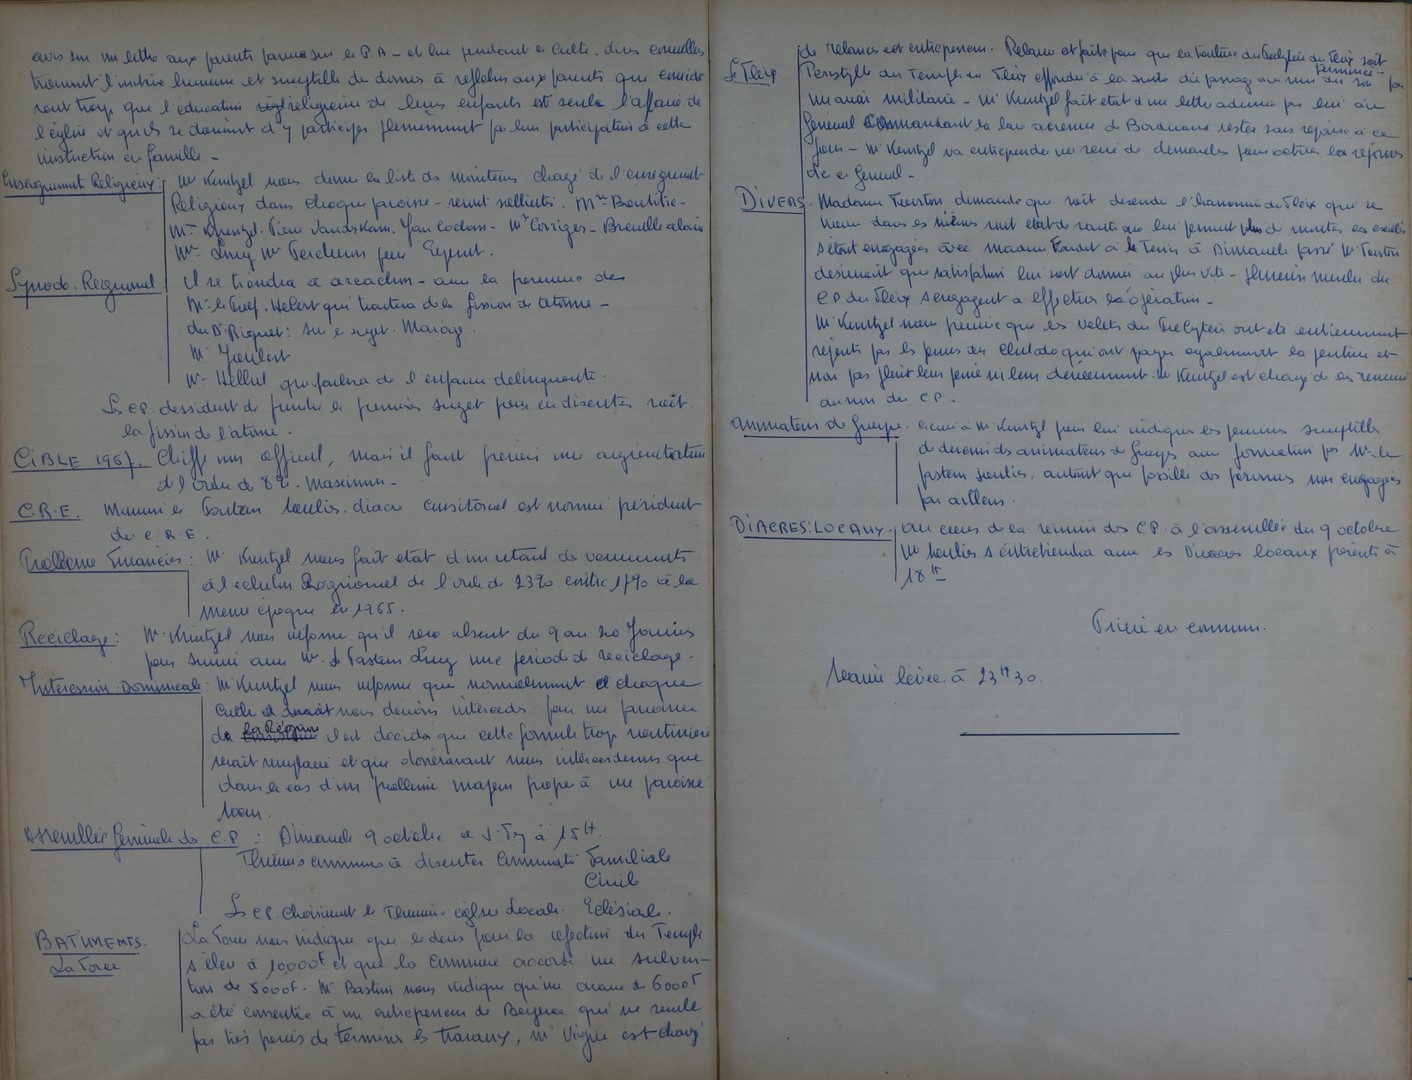 avis sur une lettre aux parents parue sur le P.A - et lue pendant le Culte. dires conseillers
trouvent l'initiative heureuse et susceptible de donner à réfléchir aux parents qui considè
rent trop que l'éducation religieuse de leurs enfants est seule l'affaire de
l'église et qu'ils se doivent d'y participer pleinement par leur participation à cette
instruction en famille -
Enseignement Religieux: Mr Kuntzel nous donne la liste des moniteurs chargé de l'enseignement
Religieux dans chaque paroisse - seront sollicités. Mme
Mme Kuntzel. Pierre Vanderkam. Yan - Mr Corriges - Alain
Mme Mr pour
Synode. Régional Il se tiendra à Arcachon - avec la présence de
Mr le Prof. qui traitera de la fission de l'atome -
du Dr Riquet: sur le sujet. Mariage.
Mr Joubert
Mr qui parlera de l'enfance délinquante.
Le CP. dessident de prendre le premier sujet pour en discuter soit
la fission de l'atome.
CIBLE 1967. Chiffre non officiel, mais il faut prévoir une augmentation
de l'ordre de 8%. Maximum -
C.R.E. Monsieur le Pasteur diacre consistorial est nommé président
du C.R.E.
Problème Financier: Mr Kuntzel nous fait état d'un retard de versements
à l'echelon Régional de l'ordre de 23% contre 17% à la
meme époque en 1965.
Reciclage: Mr Kuntzel nous informe qu'il sera absent du 9 au 20 Janvier
pour suivre avec Mr. le Pasteur une période de reciclage.
Intercession Dominicale: Mr Kuntzel nous informe que normalement à chaque
Culte nous devions interceder pour une paroisse
de la Région Il est décidé que cette formule trop routinière
serait remplacée et que dorénavant nous intercederons que
dans le cas d'un problème majeur propre à une paroisse
Assemblée Générale des C.P: Dimanche 9 octobre à à 15H.
Thèmes communs à discuter Communauté Familiale
Civile
Le CP. Choisissent le Thème. église Locale. Eclésiale.
BATIMENTS.
La Force
La Force nous indique que le devis pour la refection du Temple
s'élève à 10,000F et que la commune accorde une subven-
tion de 5000F. Mr nous indique qu'une avance de 6000F
a été consentie à un entrepreneur de Bergerac qui ne semble
pas très pressé de terminer les travaux, Mr est chargé
de relancer cet entrepreneur. Relance est faite pour que la toiture du Presbytère du Fleix soit
terminée -
Le Fleix
Peristyle du Temple du Fleix effondré à la suite du passage au mur du son par
un avion militaire - Mr Kuntzel fait état d'une lettre adressée par lui au
Général Commandant la base aérienne de Bordeaux restée sans réponse à ce
jour - Mr Kuntzel va entreprendre une série de démarches pour obtenir la réponse
de ce Général -
DIVERS. Madame demande que soit descendu l'harmonium du Fleix qui se
trouve dans les mêmes état de santé que lui permet plus de monter les escaliers
s'étant engagés avec Madame à le Tenir à Dimanche passé Mr
désirerait que satisfaction lui soit donnée au plus vite - plusieurs membres du
CP du Fleix s'engagent à effectuer l'opération -
Mr Kuntzel nous précise que les volets du Presbytère ont été entièrement
repeints par les jeunes qui ont payés également la peinture et
non pas plaint leur peine ni leur dévouement. Mr Kuntzel est chargé de les remercier
au nom du CP -
Animateur de Groupe. écrire à Mr Kuntzel pour lui indiquer les personnes susceptibles
de devenir des animateurs de Groupes avec formation par Mr le
pasteur, autant que possible des personnes non engagées
par ailleurs.
DIACRES: LOCAUX. Au cours de la réunion des CP à l'assemblée du 9 octobre
Mr s'entretiendra avec les Diacres locaux présents à
18H
Prière en commun.
Séance levée à 23H30.